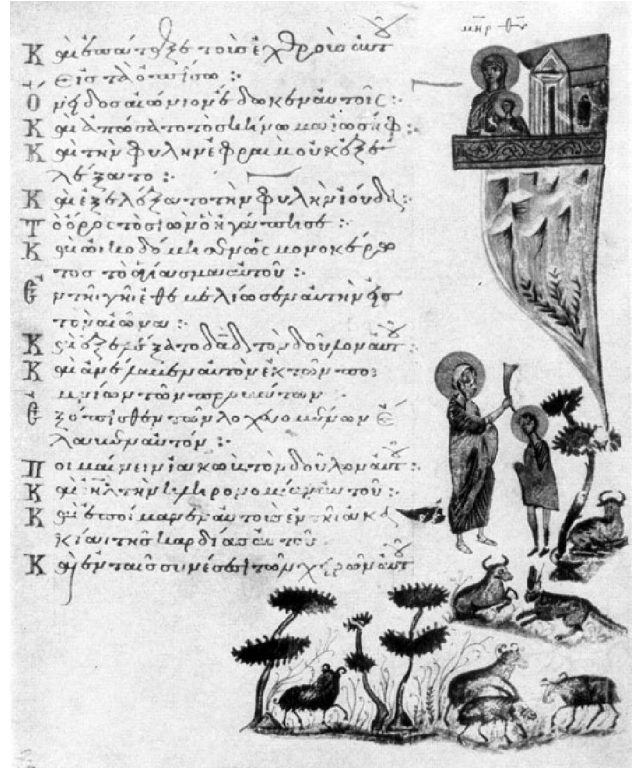 ΜΗΡ ΘΥ
Καὶ ἐπάταξε τοὺς ἐχθροὺς αὐτ
εἰς τὰ ὀπίσω :·
Ὄνειδος αἰώνιον ἔδωκεν αὐτοῖς :·
Καὶ ἀπώσατο τὸ σκήνωμα ἰωσήφ :·
Καὶ τὴν φυλὴν ἐφραὶμ οὐκ ἐξε
λέξατο :·
Καὶ ἐξελέξατο τὴν φυλὴν ἰούδα :·
Τὸ ὄρος τὸ σιὼν ὃ ἠγάπησε :·
Καὶ ὠικοδόμησεν ὡς μονοκέρω
τος τὸ ἁγίασμα αὐτοῦ :·
Ἐν τῆι γῆι ἐθεμελίωσεν αὐτὴν εἰς
τὸν αἰῶνα :·
Καὶ ἐξελέξατο δαδ τὸν δοῦλον αὐτ :·
Καὶ ἀνέλαβεν αὐτὸν ἐκ τῶν ποι
μνίων τῶν προβάτων
Ἐξόπισθεν τῶν λοχευομένων ἔ
λαβεν αὐτόν :·
Ποιμαίνειν ἰακὼβ τὸν δοῦλον αὐτ :·
Καὶ ιηλ τὴν κληρονομίαν αὐτοῦ :·
Καὶ ἐποίμανεν αὐτοὺς ἐν τῆι ἀκα
κίαι τῆς καρδίας αὐτοῦ
Καὶ ἐν ταῖς συνέσεσι τῶν χειρῶν αὐτ